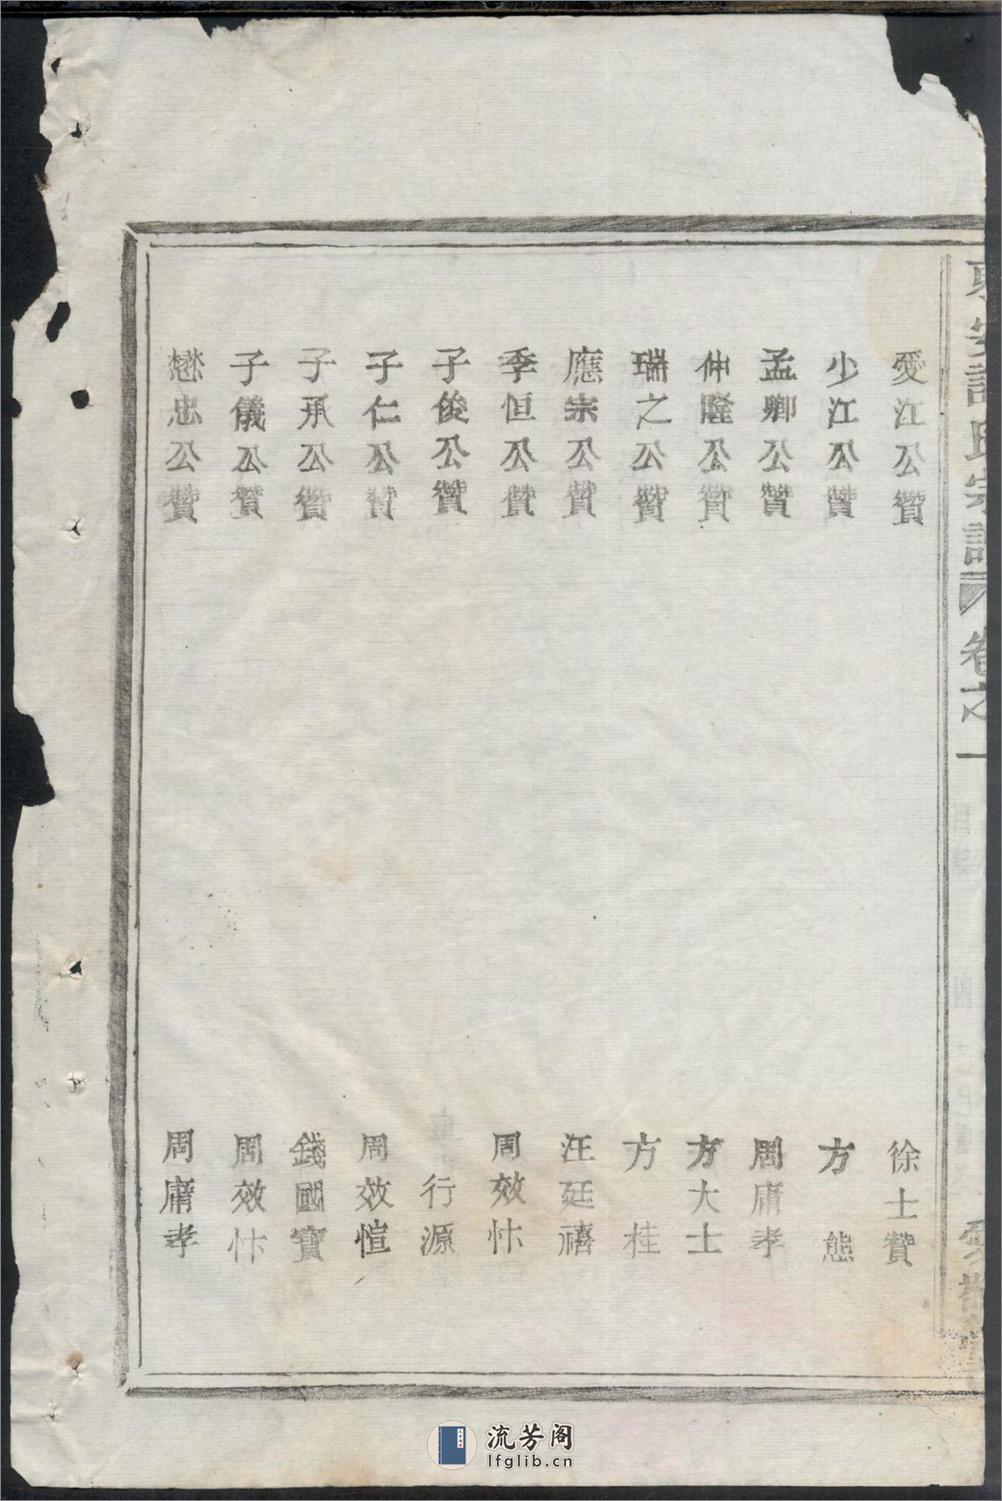 愛江公贊 徐士贊
少江公贊 方態
孟卿公贊 周庸孝
仲隆公贊 方大士
瑞之公贊 方桂
應宗公贊 汪廷禧
季恒公贊 周效忭
子俊公贊 行源
子仁公贊 周效愷
子承公贊 錢國寶
子儀公贊 周效忭
懋忠公贊 周庸孝
氏宗譜 卷之一
流芳阁
lfglib.cn